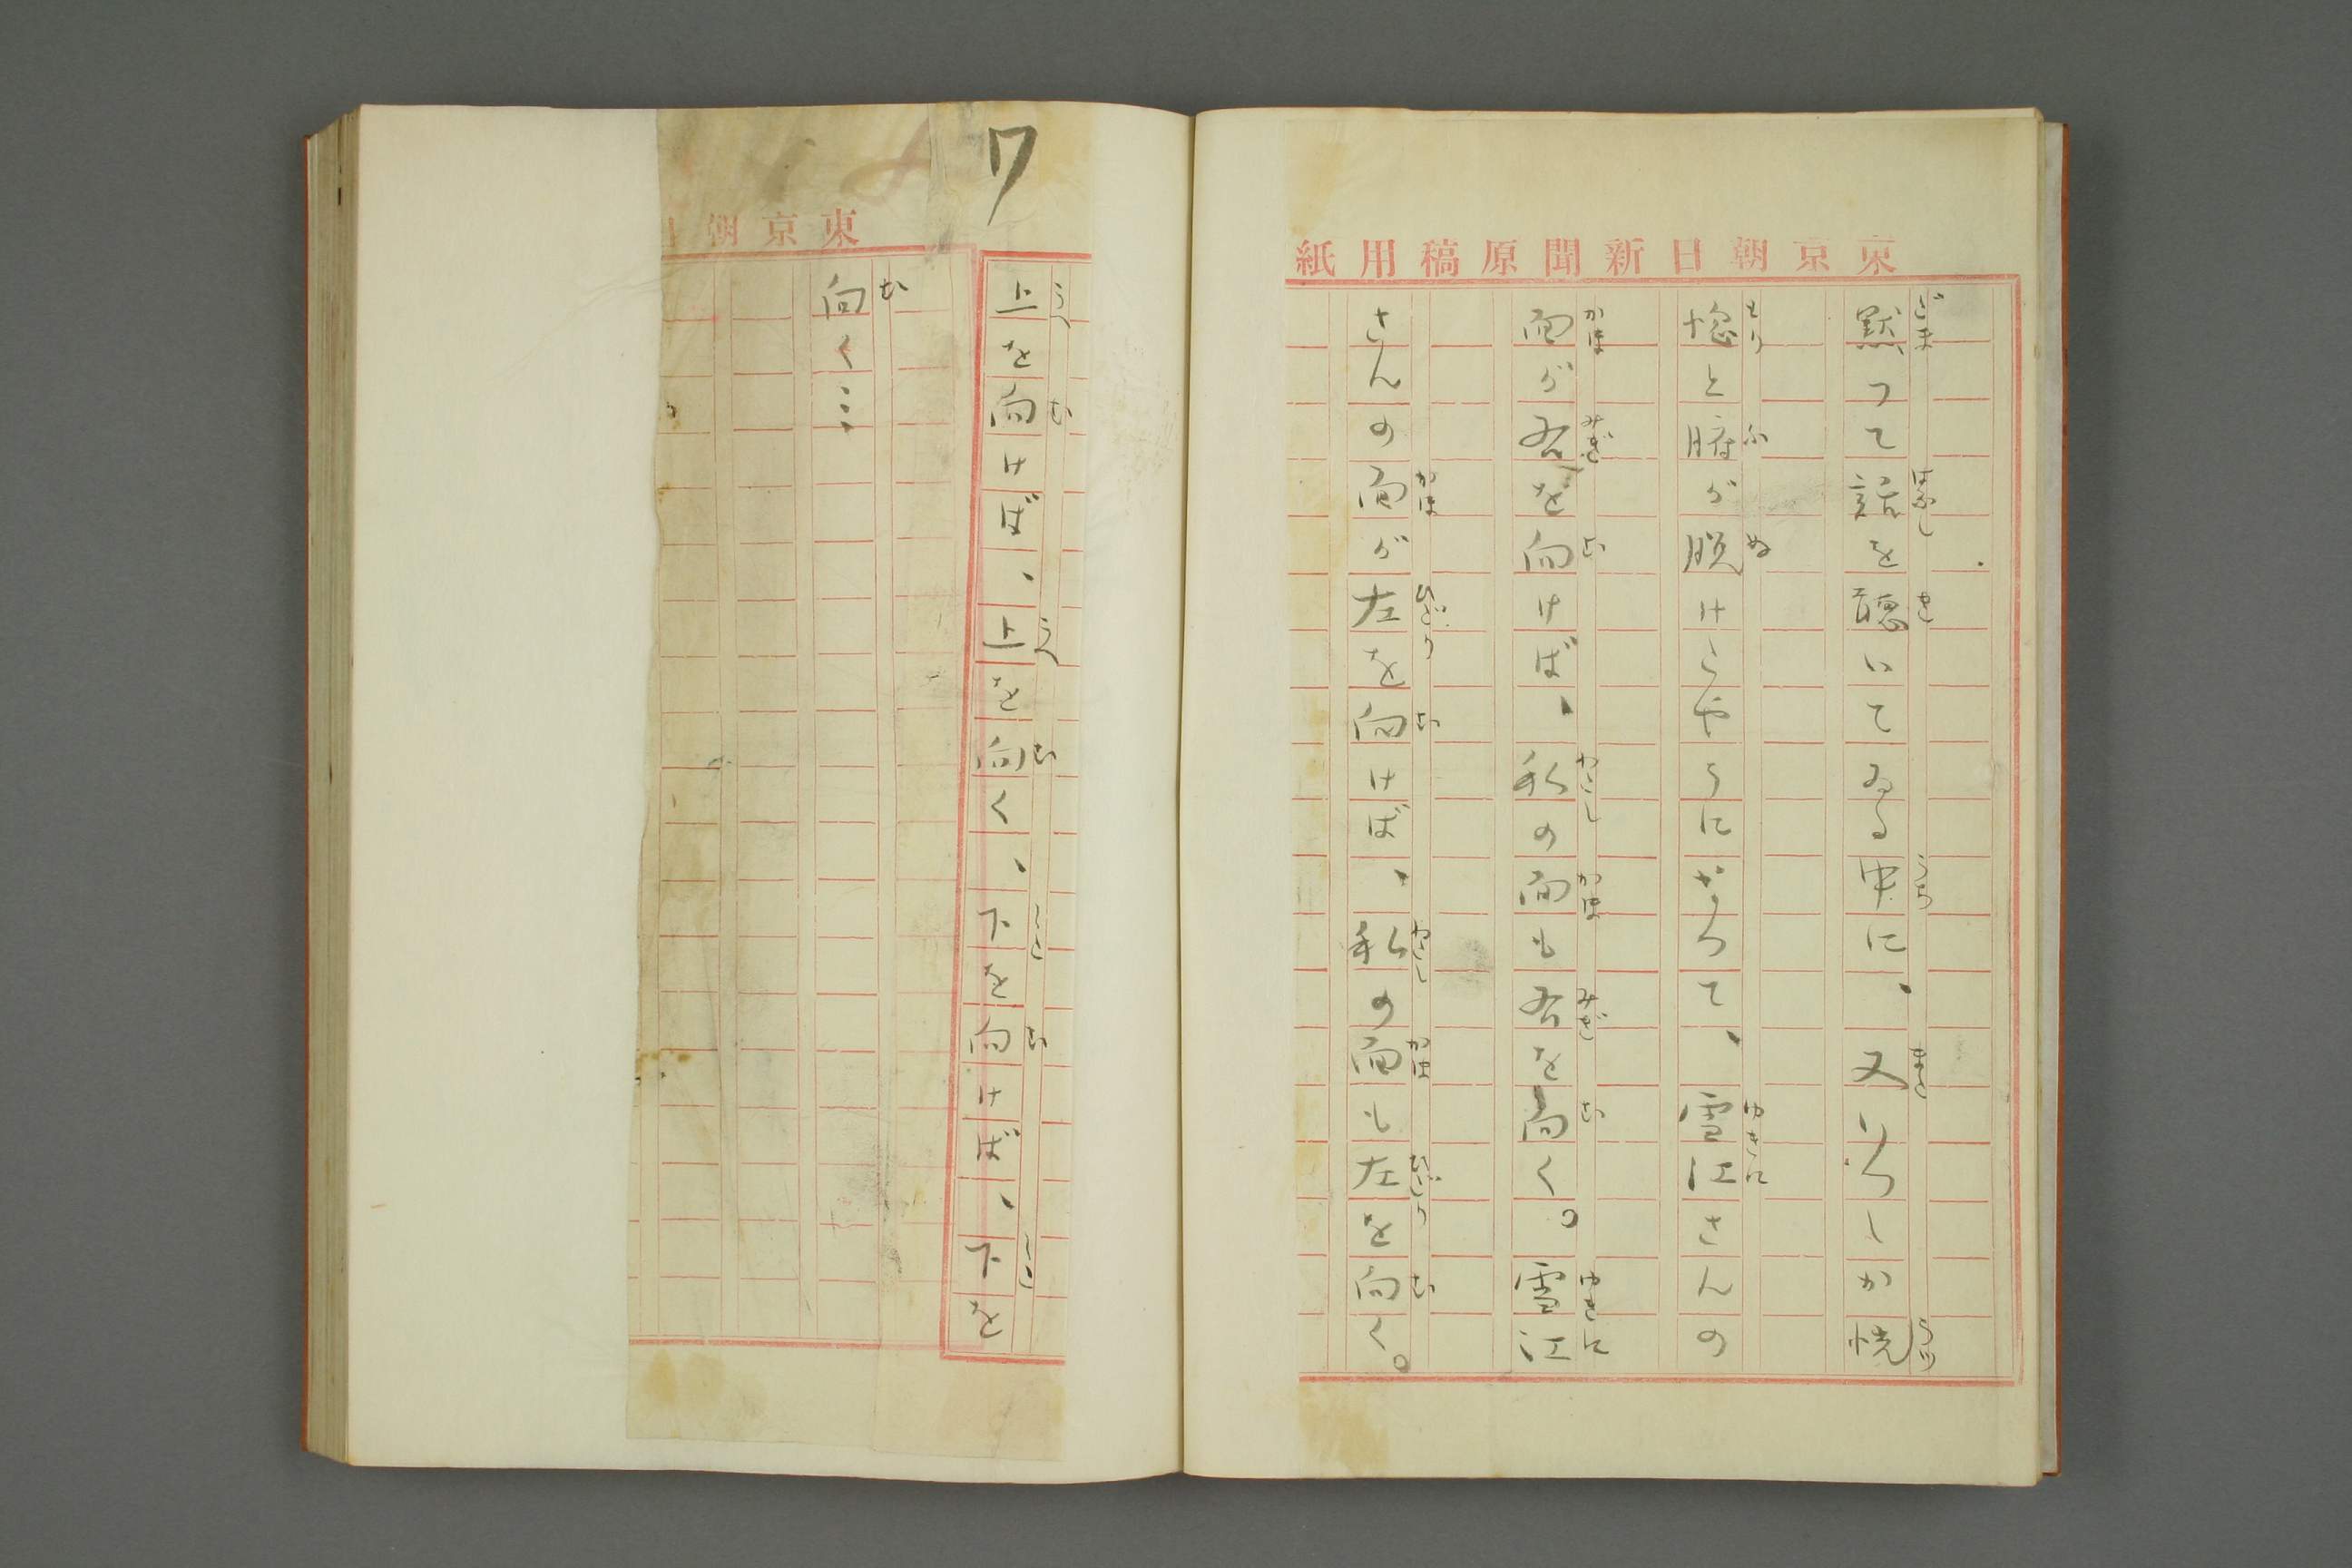 東京朝日新聞原稿用紙
黙つて話を聴いてゐる中に、又いつしか恍
惚と腑が脱けたやうになつて、雪江さんの
面が右を向けば、私の面も右を向く。雪江
さんの面が左を向けば、私の面も左を向く。
上を向けば、上を向く、下を向けば、下を
東京朝
向く…